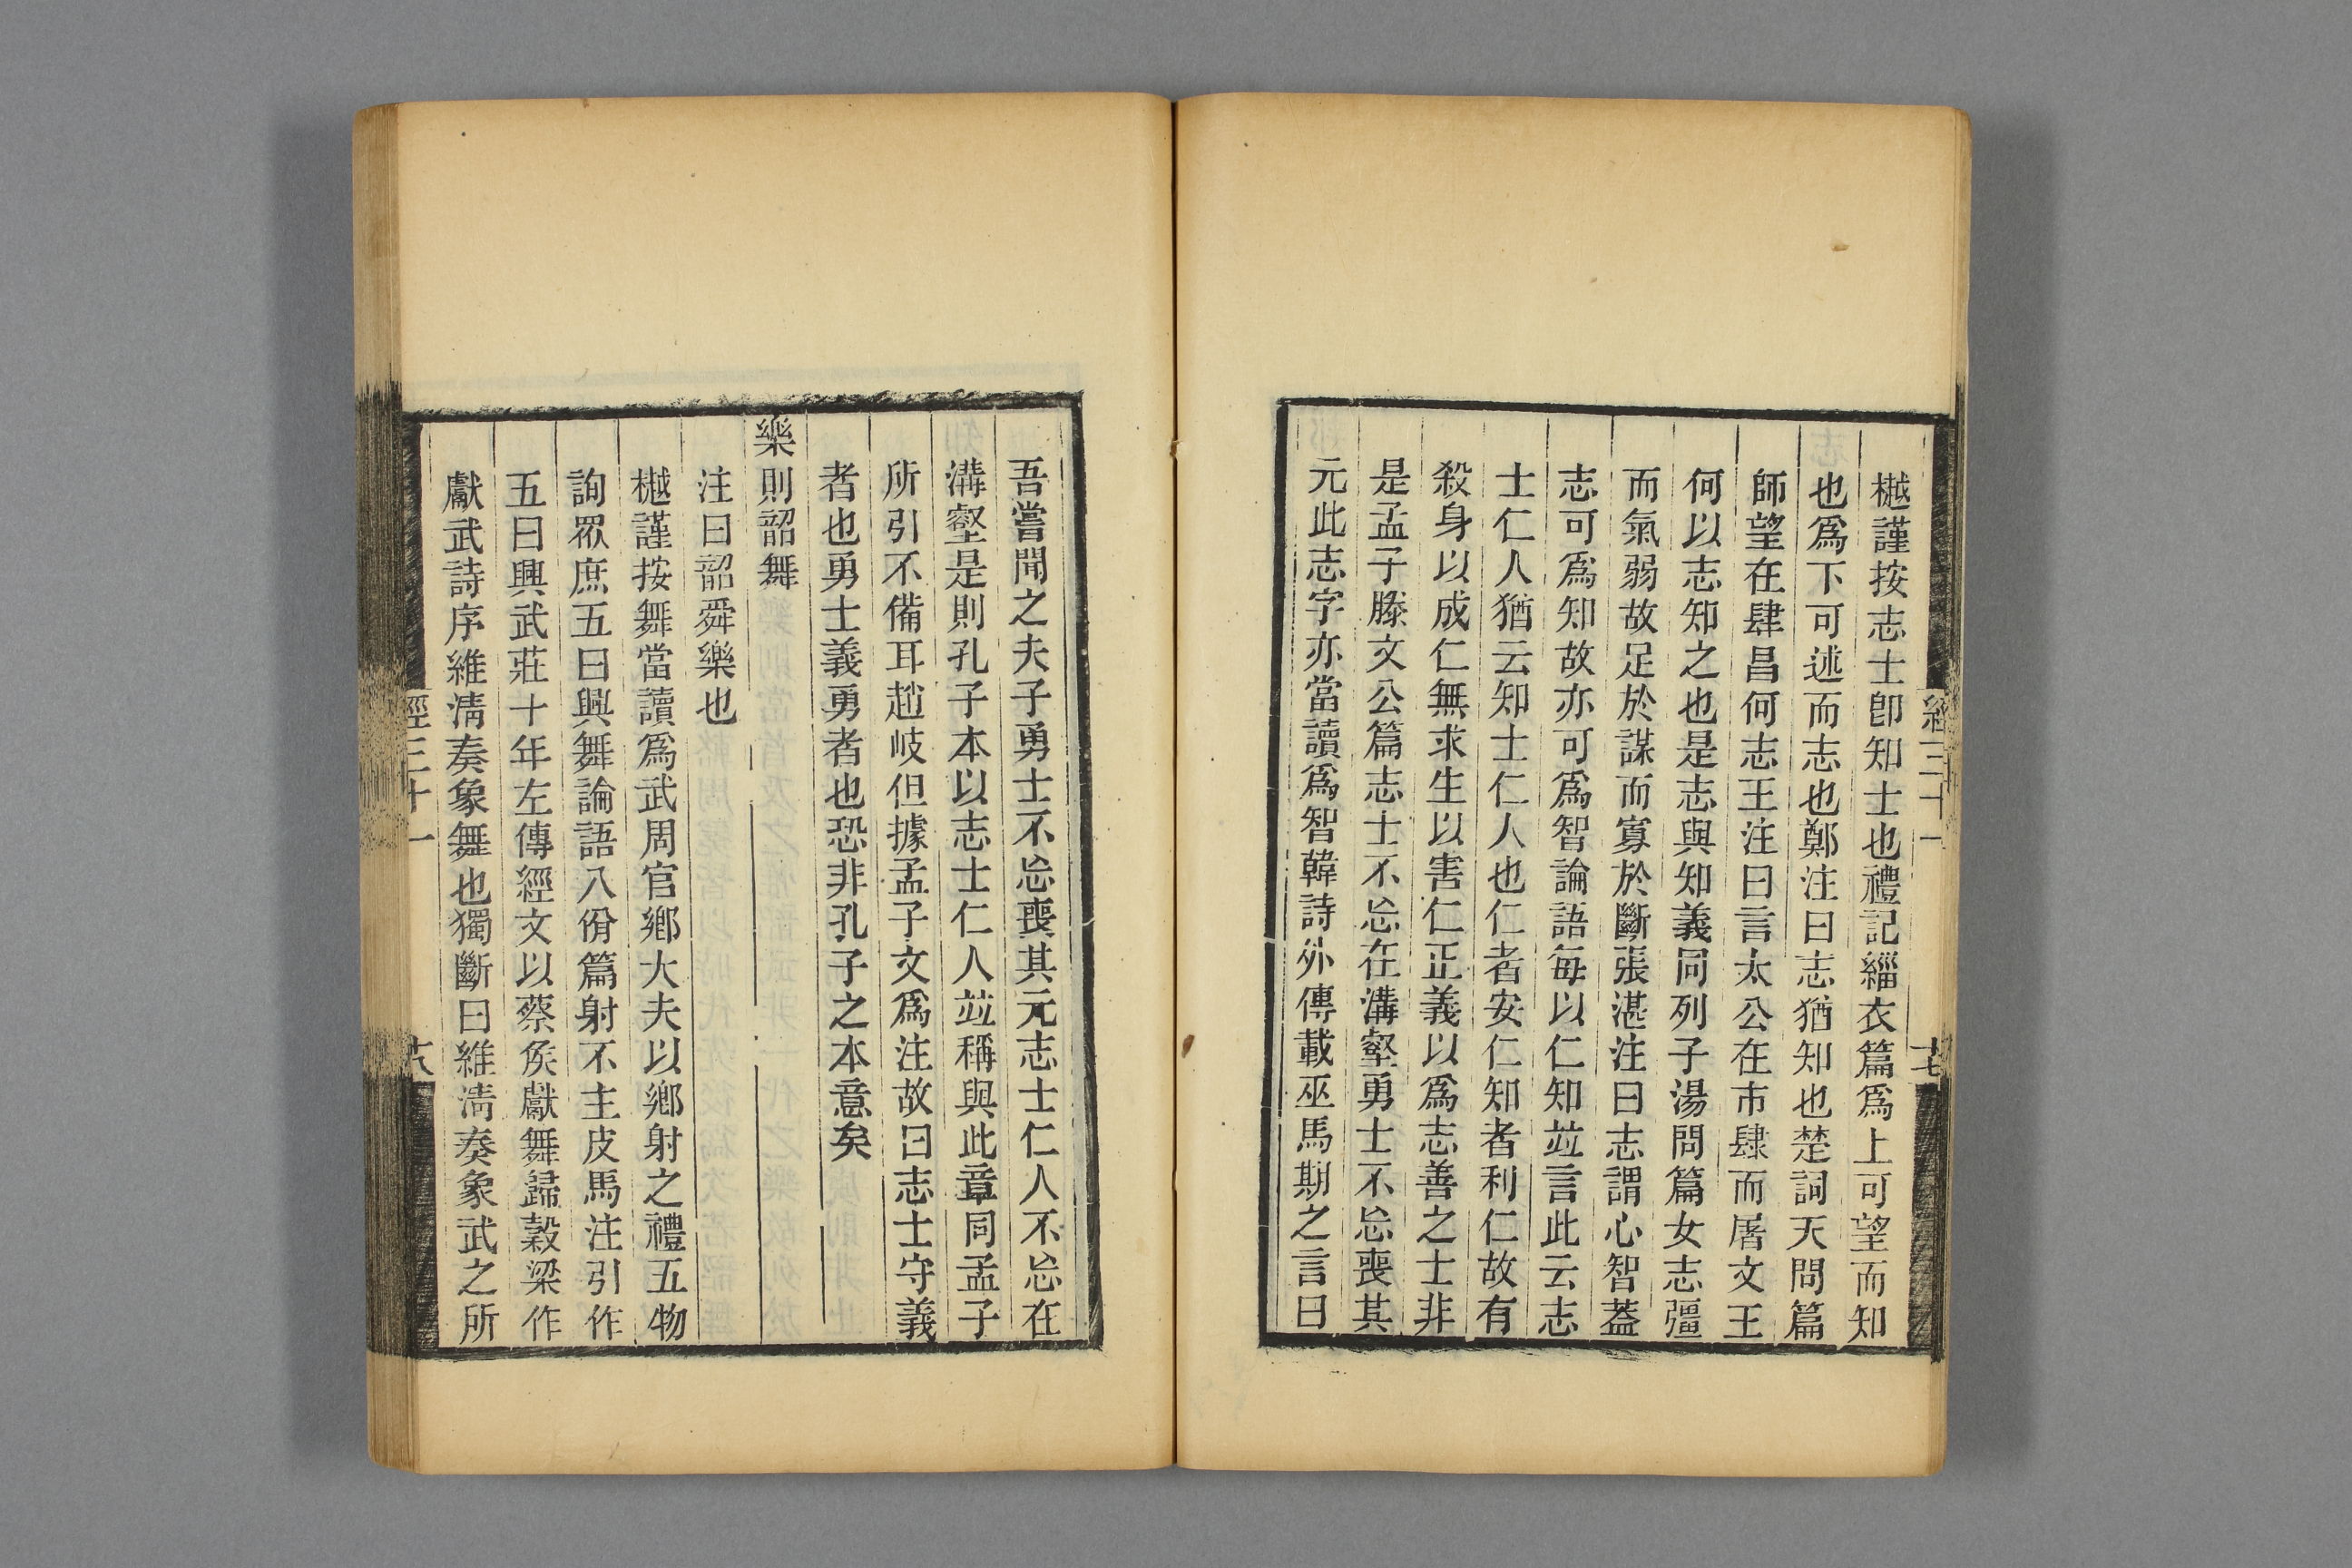 樾謹按志士卽知士也禮記緇衣篇爲上可望而知
也爲下可述而志也鄭注曰志猶知也楚詞天問篇
師望在肆昌何志王注曰言太公在市肆而屠文王
何以志知之也是志與知義同列子湯問篇女志彊
而氣弱故足於謀而寡於斷張湛注曰志謂心智蓋
志可爲知故亦可爲智論語每以仁知竝言此云志
士仁人猶云知士仁人也仁者安仁知者利仁故有
殺身以成仁無求生以害仁正義以爲志善之士非
是孟子滕文公篇志士不忘在溝壑勇士不忘喪其
元此志字亦當讀爲智韓詩外傳載巫馬期之言曰
經三十一
十七
吾嘗聞之夫子勇士不忘喪其元志士仁人不忘在
溝壑是則孔子本以志士仁人竝稱與此章同孟子
所引不備耳趙岐但據孟子文爲注故曰志士守義
者也勇士義勇者也恐非孔子之本意矣
樂則韶舞
注曰韶舜樂也
樾謹按舞當讀爲武周官鄉大夫以鄉射之禮五物
詢眾庶五曰興舞論語八佾篇射不主皮馬注引作
五曰興武莊十年左傳經文以蔡侯獻舞歸穀梁作
獻武詩序維淸奏象舞也獨斷曰維淸奏象武之所
經三十一
十八